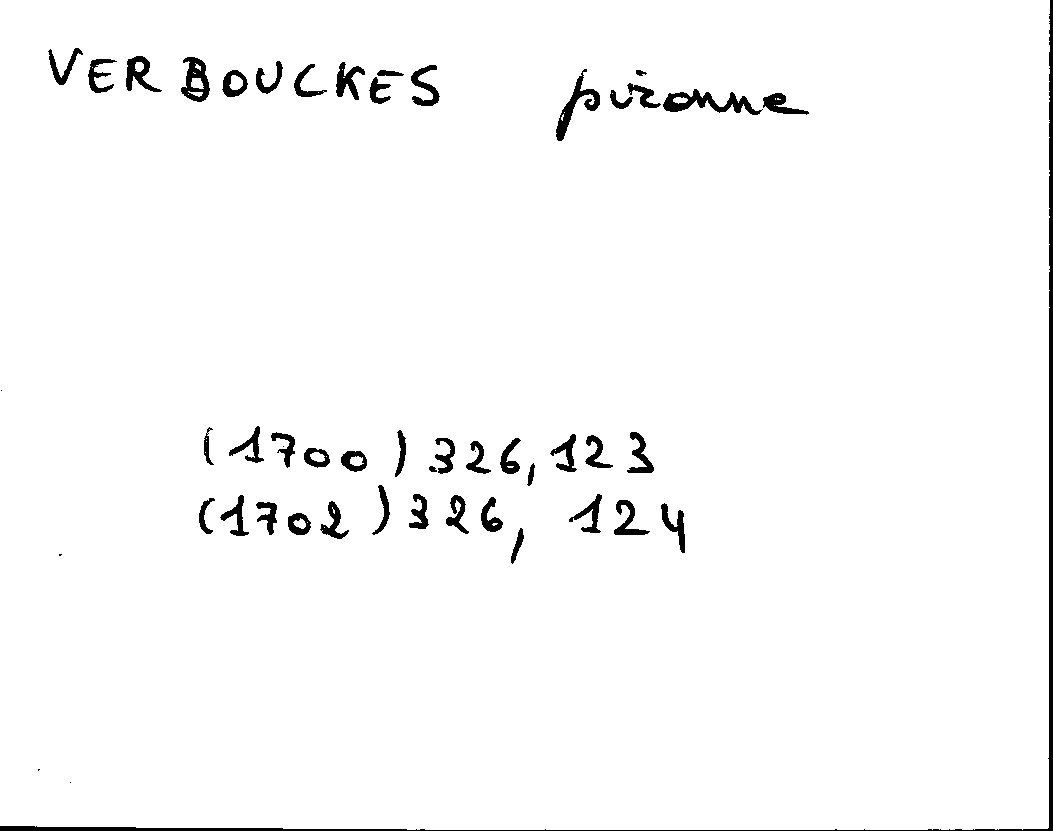 VERBOUCKES pironne
(1700) 326, 123
(1702) 326, 124